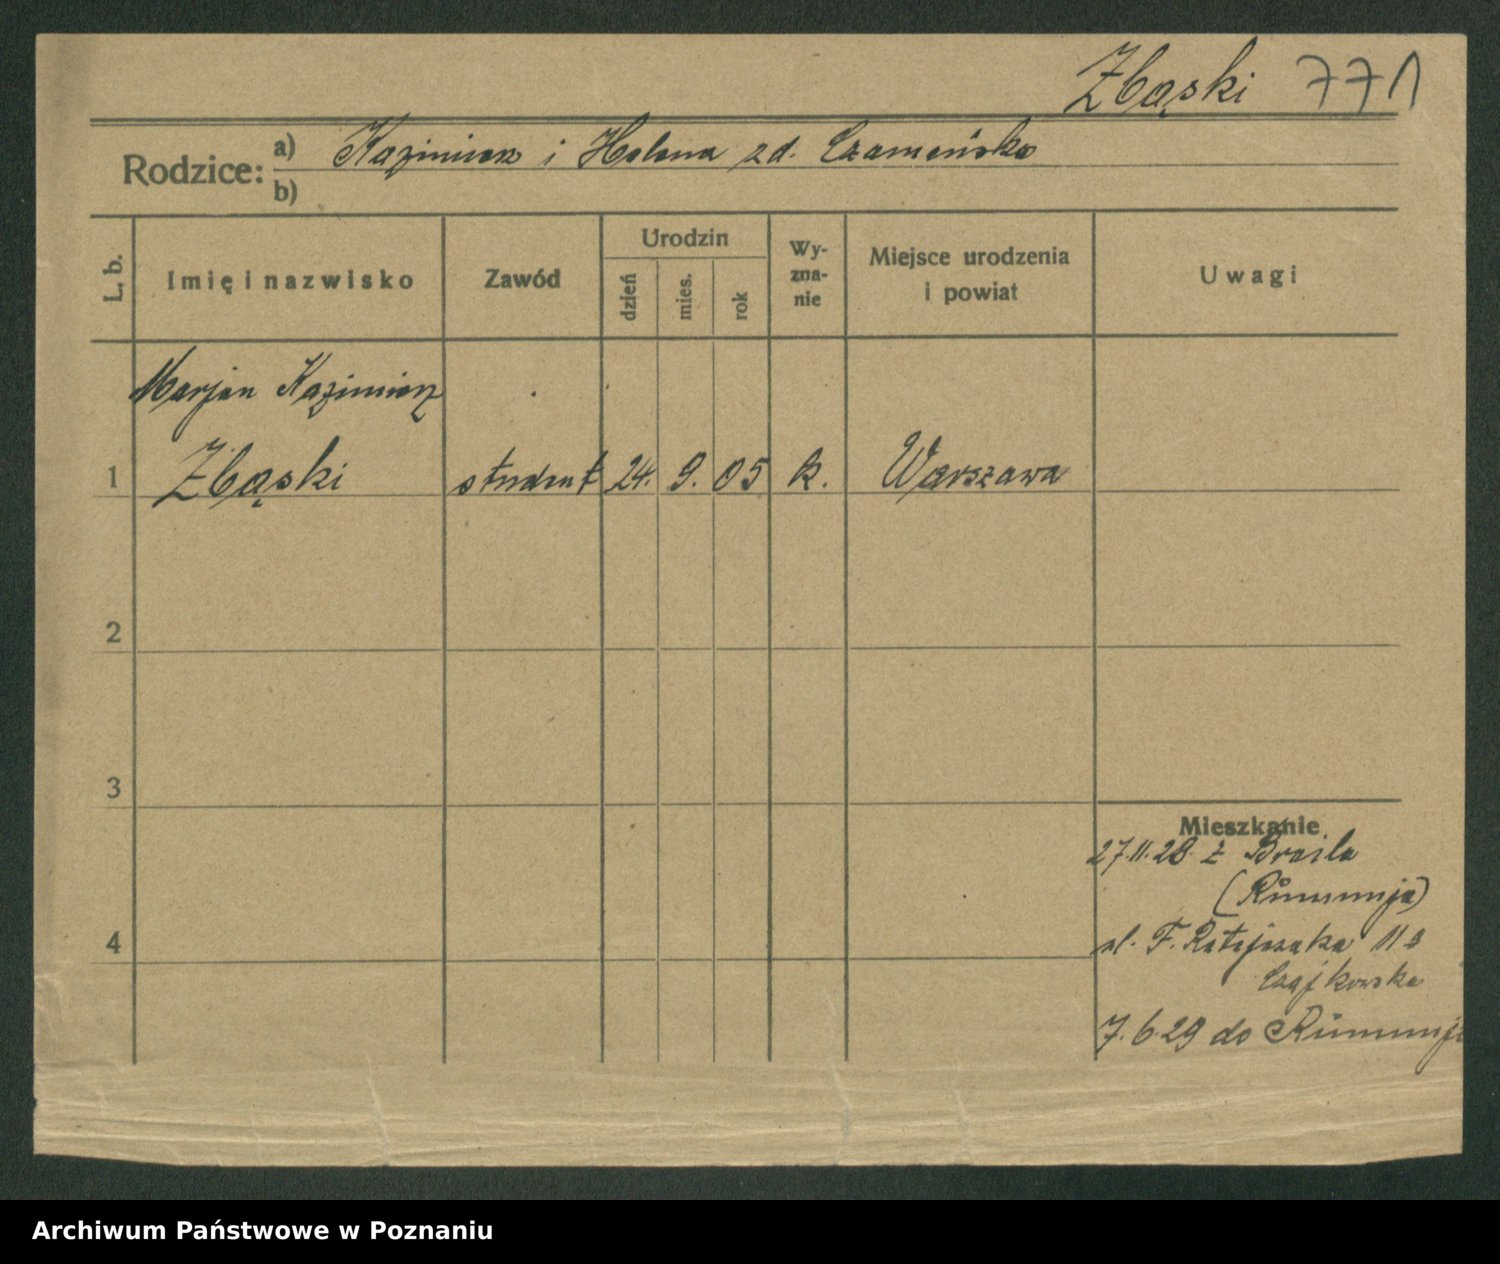 Zbąski 771
Rodzice: a) Kazimierz i Helena zd. Czamańska
b)
L. b.
Imię i nazwisko
Zawód
Urodzin
dzień
mies.
rok
Wy-
zna-
nie
Miejsce urodzenia
i powiat
Uwagi
Marjan Kazimierz
1 Zbąski student 24. 9. 05 k. Warszawa
2
3
Mieszkanie
27.11.28 z Braila
(Rumunja)
4 ul. F. Ratajczaka 11a
Czajkowska
7.6.29 do Rumunji
Archiwum Państwowe w Poznaniu